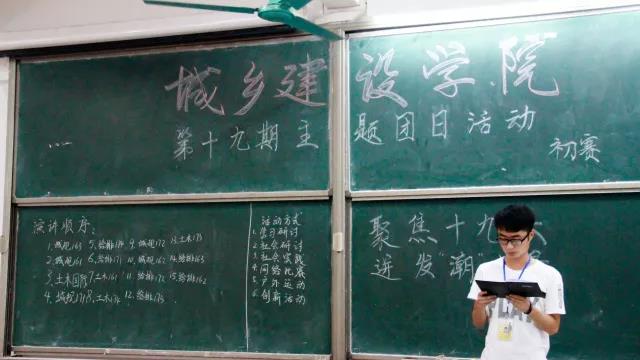 城乡建设学院
第十九期主题团日活动
初赛
演讲顺序:
1.城规163 5.给排174 9.城规172 13.土木173
2.城规161 6.给排171 10.城规162 14.给排163
3.土木国际 7.土木161 11.给排172 15.给排162
4.城规171 8.土木174 12.给排173
活动方式
1.学习研讨
2.社会研讨
3.社会实践
4.问答比赛
5.户外运动
6.创新活动
聚焦十九大
迸发"潮"